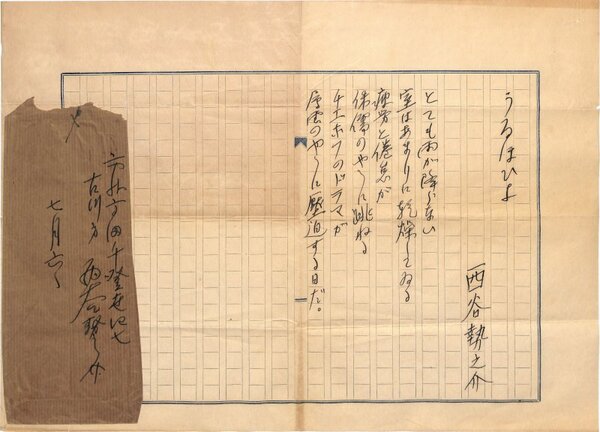 うるほひよ
西谷勢之介
とても雨が降らない
室はあまりに乾燥してゐる
疲労と倦怠が
侏儒のやうに跳ねる
チエホフのドラマが
層雲のやうに圧迫する日だ。
市外下田千登世
古川方 西谷勢之介
七月六日